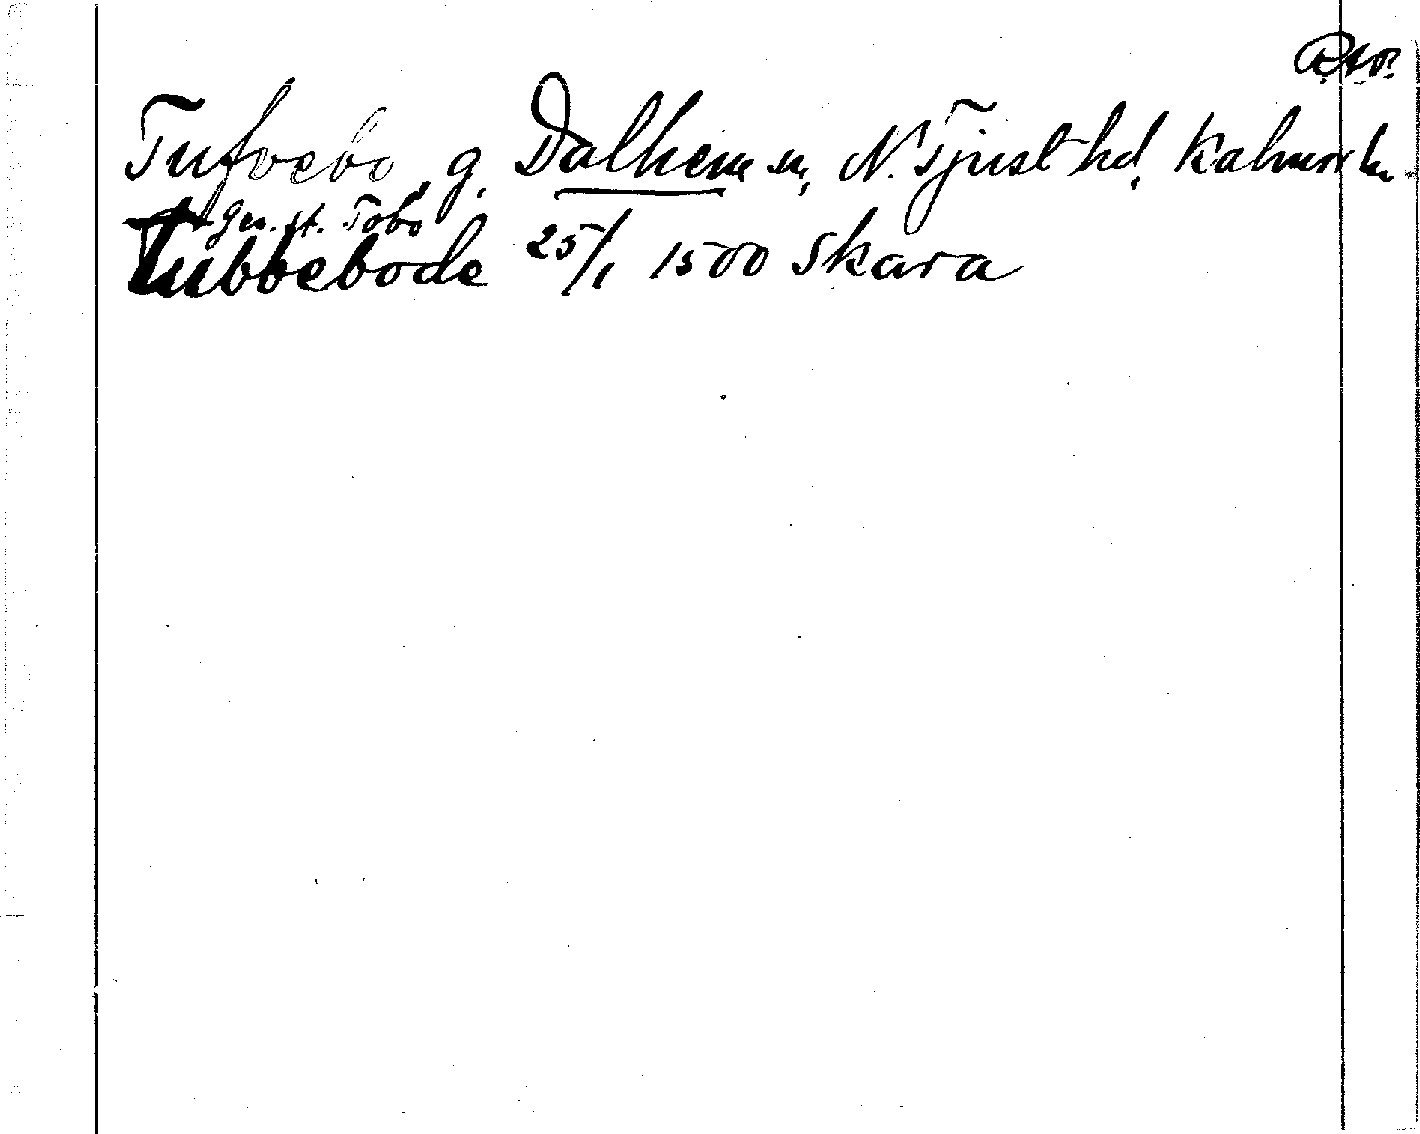 Tufvebo, g. Dalhem sn, N. Tjust hd, Kalmar ln.
gen. st. Tobo
Tubbebode 25/1 1500 Skara